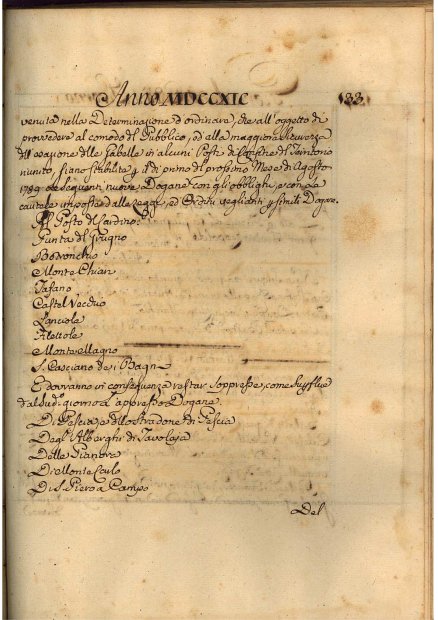 Anno MDCCXIC 133
venuta nella Determinazione d'ordinare, che all'oggetto di
provvedere al comodo del Pubblico, ed alla maggiore sicurezza
dell' esazione delle Gabelle in alcuni Posti di Confine di Territorio
riunito, siano stabilite p. il dì primo del prossimo Mese di Agosto
1789. le seguenti nuove Dogane con gli obblighi, e con le
cautele imposte dalle regole, ed Ordini veglianti p. simili Dogane.
Al Posto del Sardino
Punta del Prugno
Monte Chiari
Tafano
Castel Vecchio
Lanciola
S. Casciano dei Bagni
E dovranno in conseguenza restar soppresse, come superflue
dal sud.º giorno le appresso Dogane.
Di Pescia e dello Stradone di Pescia
Degl' Alberghi di
Delle Pianora
Di Monte Carlo
Di S. Piero a Campo
Del